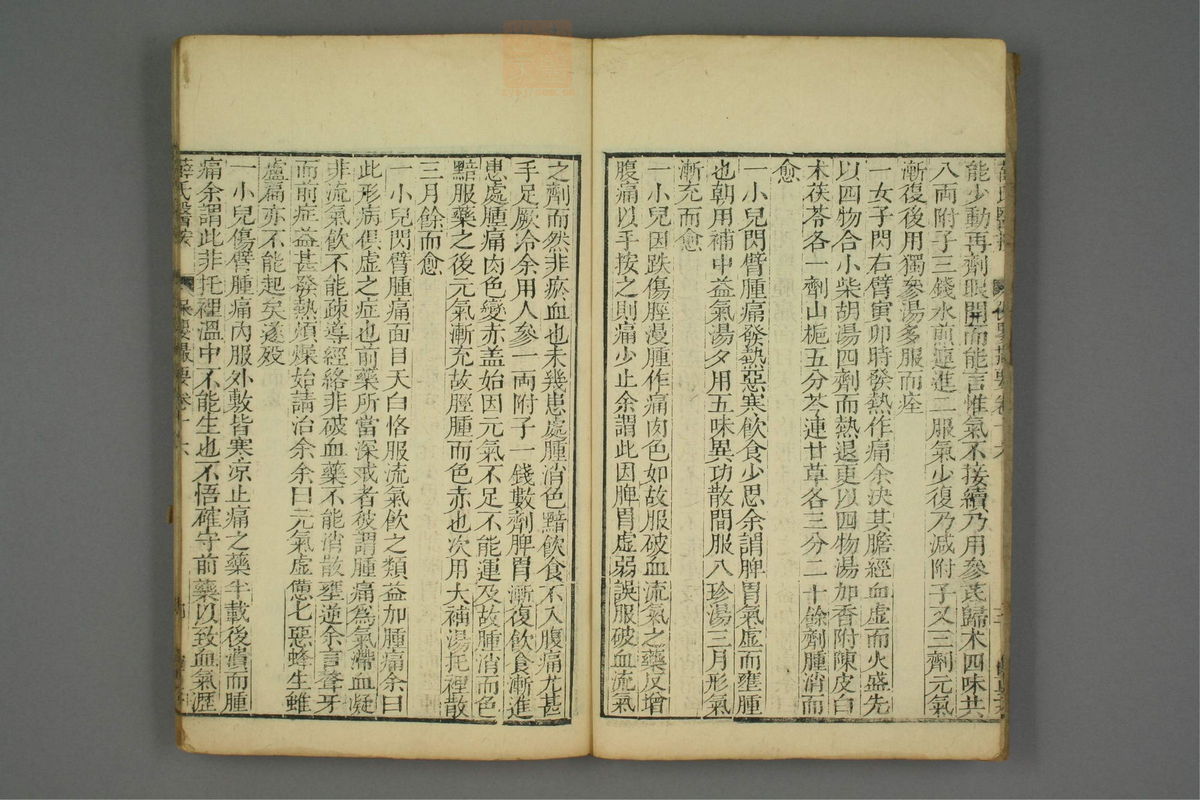 能少動再劑眼開而能言惟氣不接續乃用參芪歸朮四味共
八両附子三錢水煎連進二服氣少復乃減附子又三劑元氣
漸復後用獨參湯多服而痊
一女子閃右臂寅卯時發熱作痛余決其膽經血虛而火盛先
以四物合小柴胡湯四劑而熱退更以四物湯加香附陳皮白
朮茯苓各一劑山梔五分芩連甘草各三分二十餘劑腫消而
愈
一小兒閃臂腫痛發熱惡寒飲食少思余謂脾胃氣虛而壅腫
也朝用補中益氣湯夕用五味異功散間服八珍湯三月形氣
漸充而愈
一小兒因跌傷脛漫腫作痛肉色如故服破血流氣之藥反增
腹痛以手按之則痛少止余謂此因脾胃虛弱誤服破血流氣
之劑而然非瘀血也未幾患處腫消色黯飲食不入腹痛尤甚
手足厥冷余用人參一両附子一錢數劑脾胃漸復飲食漸進
患處腫痛肉色變赤盖始因元氣不足不能運及故腫消而色
黯服藥之後元氣漸充故脛腫而色赤也次用大補湯托裡散
三月餘而愈
一小兒閃臂腫痛面目夭白恪服流氣飲之類益加腫痛余曰
此形病俱虛之症也前藥所當深戒者彼謂腫痛爲氣滯血凝
非流氣飲不能疎導經絡非破血藥不能消散壅逆余言聱牙
而前症益甚發熱煩燥始請治余余曰元氣虛憊七惡蜂生雖
盧扁亦不能起矣遂歿
一小兒傷臂腫痛內服外敷皆寒凉止痛之藥半載後潰而腫
痛余謂此非托裡溫中不能生也不悟確守前藥以致血氣瀝
薛氏醫按 保嬰撮要卷十六